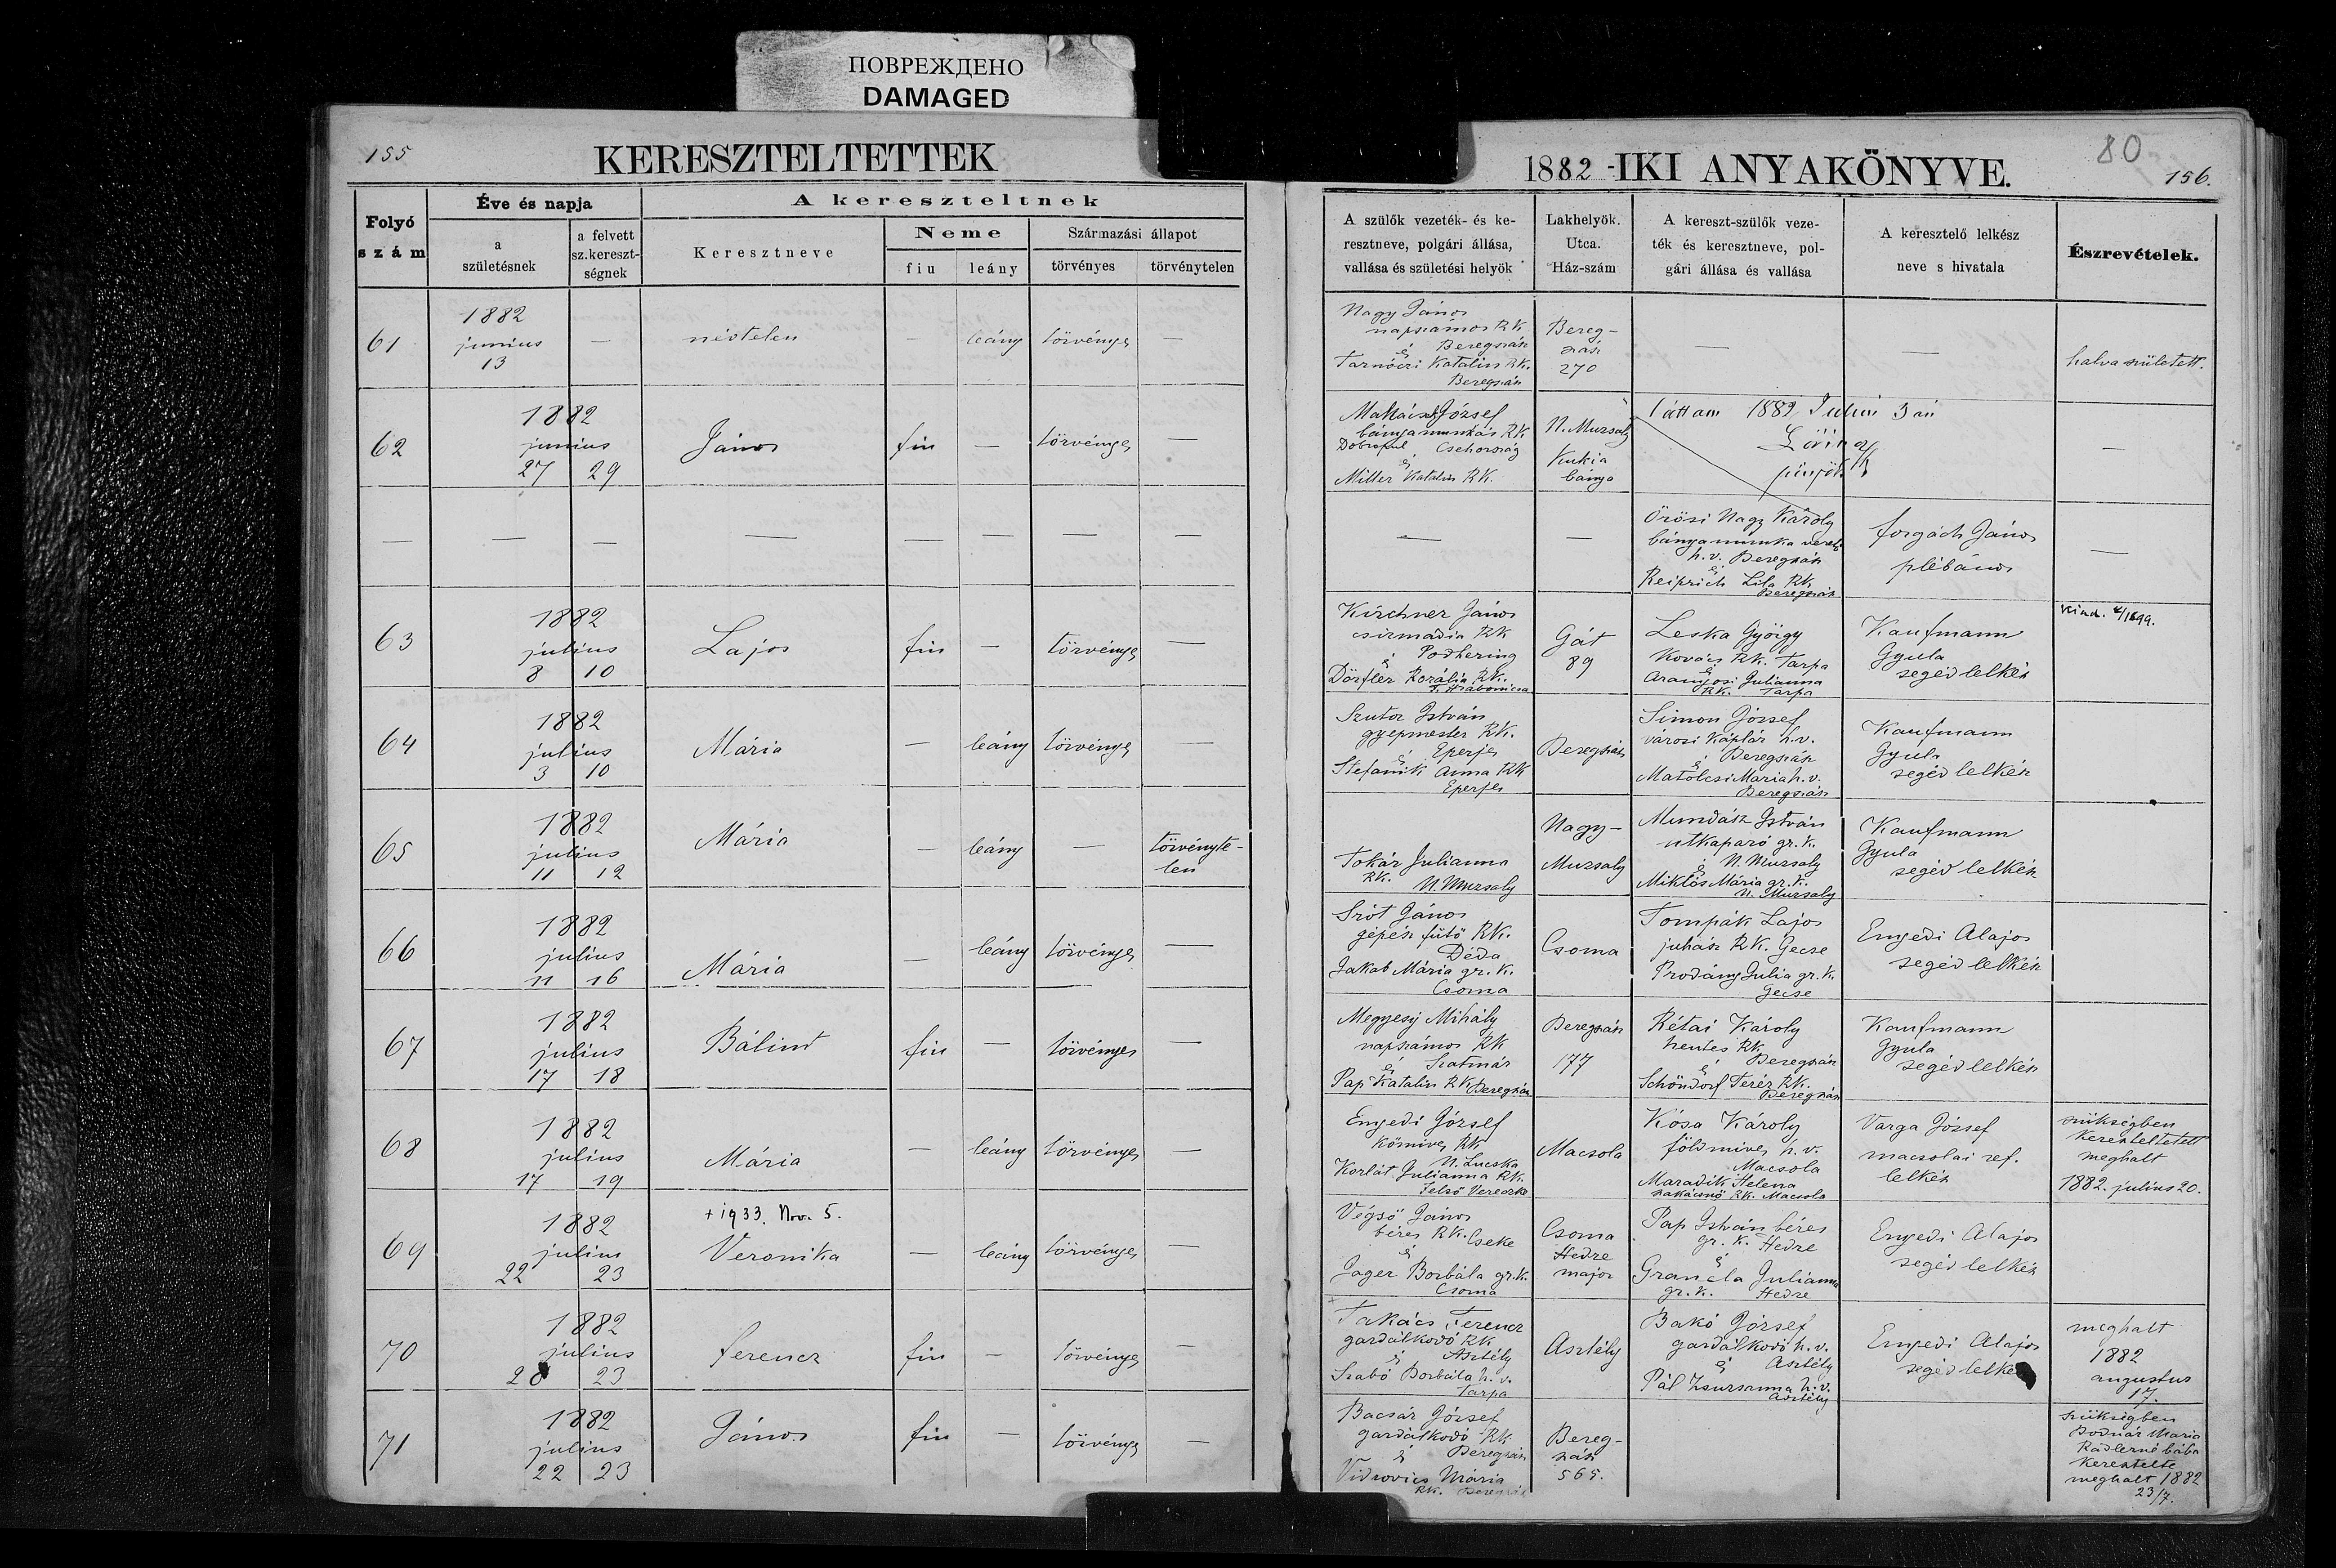 ПОВРЕЖДЕНО
DAMAGED
155
KERESZTELTETTEK
Folyó
szám
Éve és napja
a
születésnek
a felvett
sz.kereszt-
ségnek
A kereszteltnek
Keresztneve
Neme
fiu
leány
Származási állapot
törvényes
törvénytelen
61
1882
junius
13
—
névtelen
—
leány
törvényes
—
62
1882
junius
27 29
János
fiu
—
törvényes
—
— — — — — — — —
63
1882
julius
8 10
Lajos
fiu
—
törvényes
—
64
1882
julius
3 10
Mária
—
leány
törvényes
—
65
1882
julius
11 12
Mária
—
leány
—
törvényte-
len
66
1882
julius
11 16
Mária
—
leány
törvényes
—
67
1882
julius
17 18
Bálint
fiu
—
törvényes
—
68
1882
julius
17 19
Mária
—
leány
törvényes
—
69
1882
julius
22 23
+ 1933. Nov. 5.
Veronika
—
leány
törvényes
—
70
1882
julius
23
Ferencz
fiu
—
törvényes
—
71
1882
julius
22 23
János
fiu
—
törvényes
—
80
1882 -IKI ANYAKÖNYVE.
156.
A szülők vezeték- és ke-
resztneve, polgári állása,
vallása és születési helyök
Lakhelyök.
Utca.
Ház-szám
A kereszt-szülők veze-
ték és keresztneve, pol-
gári állása és vallása
A keresztelő lelkész
neve s hivatala
Észrevételek.
Nagy János
napszámos RK
és Beregszász
Tarnóczi Katalin RK.
Beregszász
Bereg-
szász
270
—
—
halva született.
József
bányamunkás RK.
Csehország
és
Miller Katalin RK.
N. Muzsaly
Kukia
bánya
Láttam 1882 Julius 3án
püspök
—
—
—
Örösi Nagy Károly
bányamunka vezető
h.v. Beregszász
és
Reiprich Lila RK.
Beregszász
Forgách János
plébános
—
Kirchner János
csizmadia RK
Podhering
és
Dörfler Rozália RK.
Gát
89
Leska György
Kovács RK. Tarpa
és
Aranyosi Julianna
RK. Tarpa
Kaufmann
Gyula
segéd lelkész
Kiad. 1899.
Szutor István
gyepmester RK.
Eperjes
és
Stefanik Anna RK
Eperjes
Beregszász
Simon József
városi káplár h.v.
és Beregszász
Matolcsi Mária h.v.
Beregszász
Kaufmann
Gyula
segéd lelkész
Tokár Julianna
RK. N. Muzsaly
Nagy-
Muzsaly
Mundász István
utkaparó gr. k.
és N. Muzsaly
Miklós Mária gr. k.
N. Muzsaly
Kaufmann
Gyula
segéd lelkész
Szót János
gépész fütő RK.
Déda
Jakab Mária gr. k.
Csoma
Csoma
Tompák Lajos
juhász RK. Gecse
Prodány Julia gr. k.
Gecse
Enyedi Alajos
segéd lelkész
Megyesy Mihály
napszámos RK
és Szatmár
Pap Katalin RK Beregszász
Beregszász
177
Rétai Károly
hentes RK.
és Beregszász
Schöndorf Teréz RK.
Beregszász
Kaufmann
Gyula
segéd lelkész
Enyedi József
kőmives RK
N. Lucska
Korlát Julianna RK.
Felső Vereczke
Macsola
Kósa Károly
földmives h. v.
Macsola
Maradik Helena
szakácsnő RK. Macsola
Varga József
macsolai ref.
lelkész
szükségben
kereszteltetett
meghalt
1882. julius 20.
Végső János
béres RK. Cseke
és
Jager Borbála gr. k.
Csoma
Csoma
Hedre
major
Pap István béres
gr. k. Hedre
és
Julianna
gr. k. Hedre
Enyedi Alajos
segéd lelkész
Takács Ferencz
gazdálkodó RK
és Asztély
Szabó Borbála h. v.
Tarpa
Asztély
Bakó József
gazdálkodó h. v.
és Asztély
Pál Zsuzsanna h. v.
Asztély
Enyedi Alajos
segéd lelkész
meghalt
1882
augustus
17.
Bacsár József
gazdálkodó RK
és Beregszász
Vidnovics Mária
RK. Beregszász
Bereg-
szász
565.
szükségben
Bodnár Mária
Rádlerné bába
keresztelte
meghalt 1882
23/7.